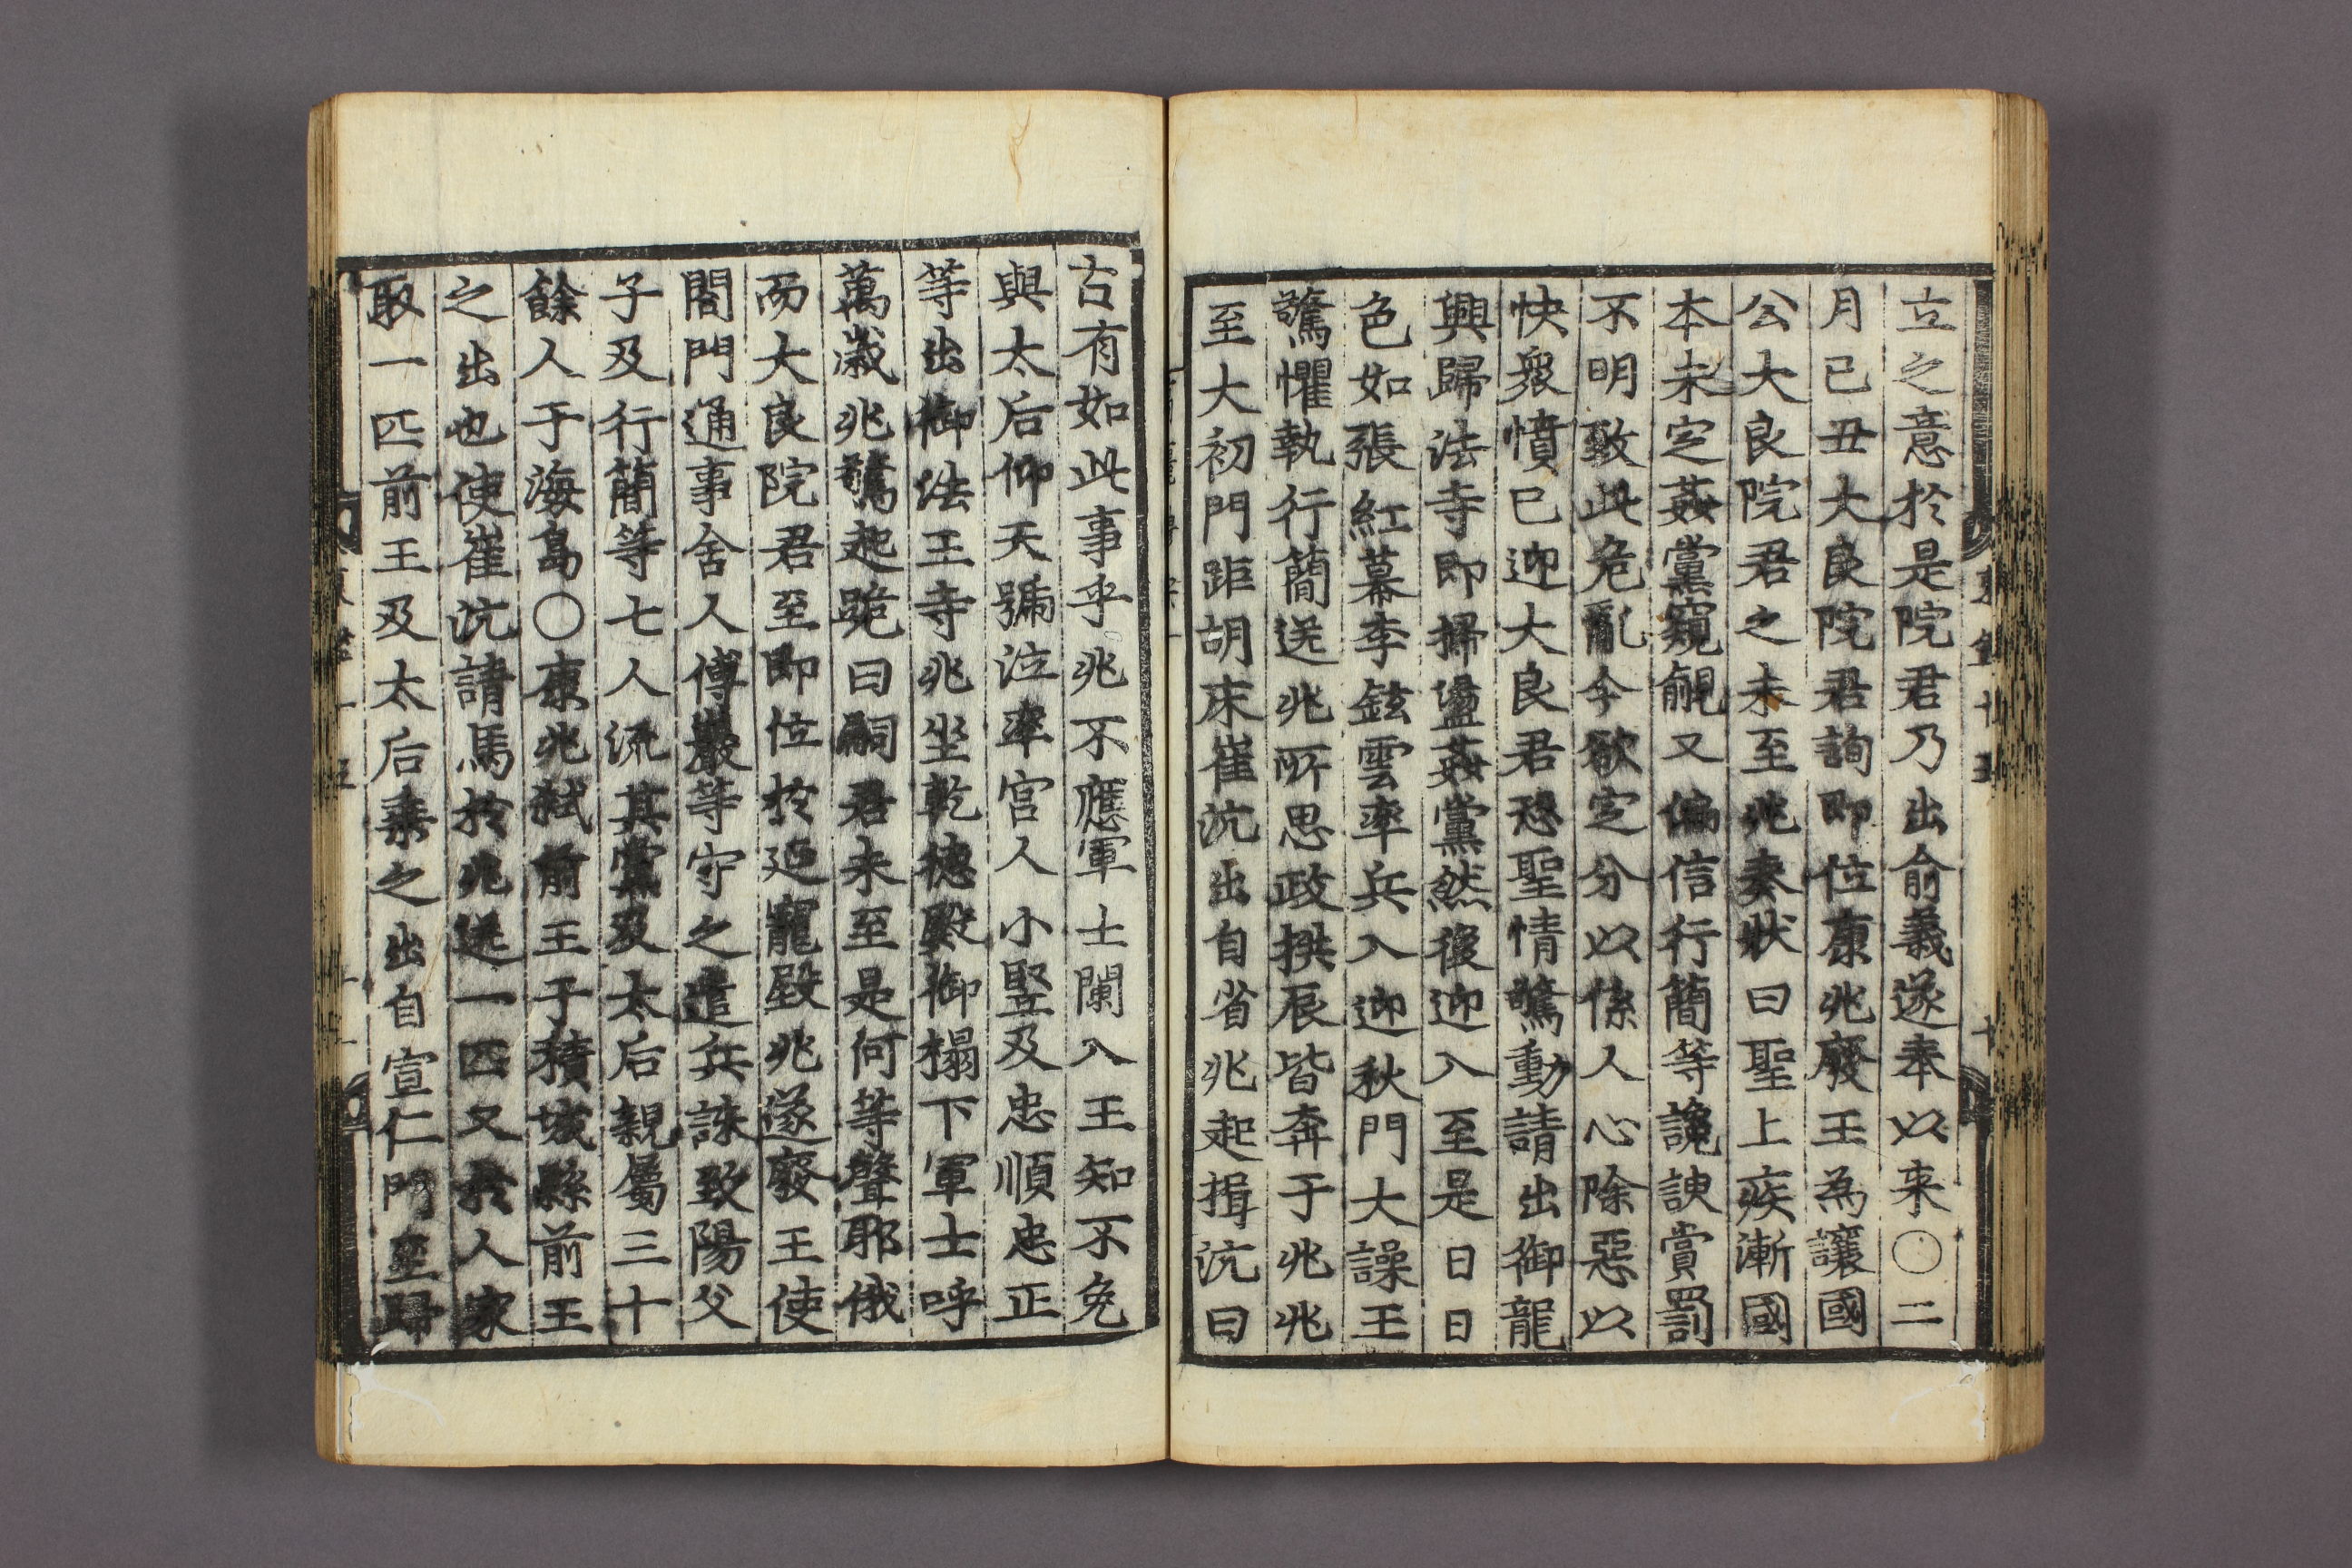 立之意於是院君乃出俞義遂奉以来〇二
月己丑大良院君詢即位康兆廢王為讓國
公大良院君之未至兆奏狀曰聖上疾漸國
本未定姦黨窺覦又偏信行簡等讒諛賞罰
不明致此危亂今欲定分以係人心除惡以
快衆憤已迎大良君恐聖情驚動請出御龍
興歸法寺即掃盪姦黨然後迎入至是日日
色如張紅幕李鉉雲率兵入迎秋門大譟王
驚懼執行簡送兆所思政拱辰皆奔于兆兆
至大初門距胡床崔沆出自省兆起揖沆曰
古有如此事乎兆不應軍士闌入王知不免
與太后仰天號泣率宫人小竪及忠順忠正
等出御法王寺兆坐乾德殿御榻下軍士呼
萬歲兆驚起跪曰嗣君未至是何等聲耶俄
而大良院君至即位於延寵殿兆遂廢王使
閤門通事舍人傅巖等守之遣兵誅致陽父
子及行簡等七人流其黨及太后親屬三十
餘人于海島〇康兆弑前王于積城縣前王
之出也使崔沆請馬於兆送一匹又於人家
取一匹前王及太后乘之出自宣仁門至歸